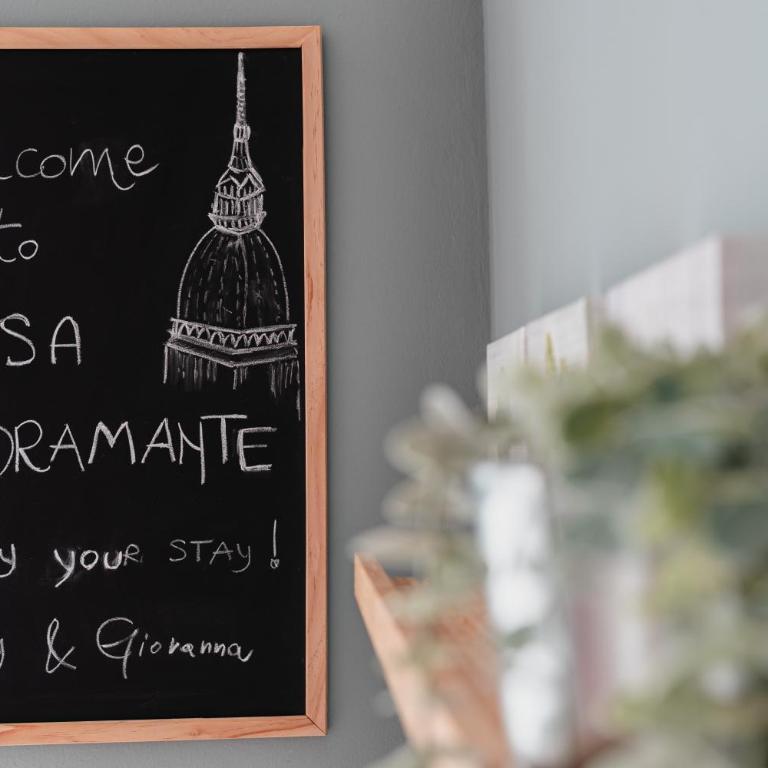 come
to
SA
DRAMANTE
y your STAY!
& Giovanna